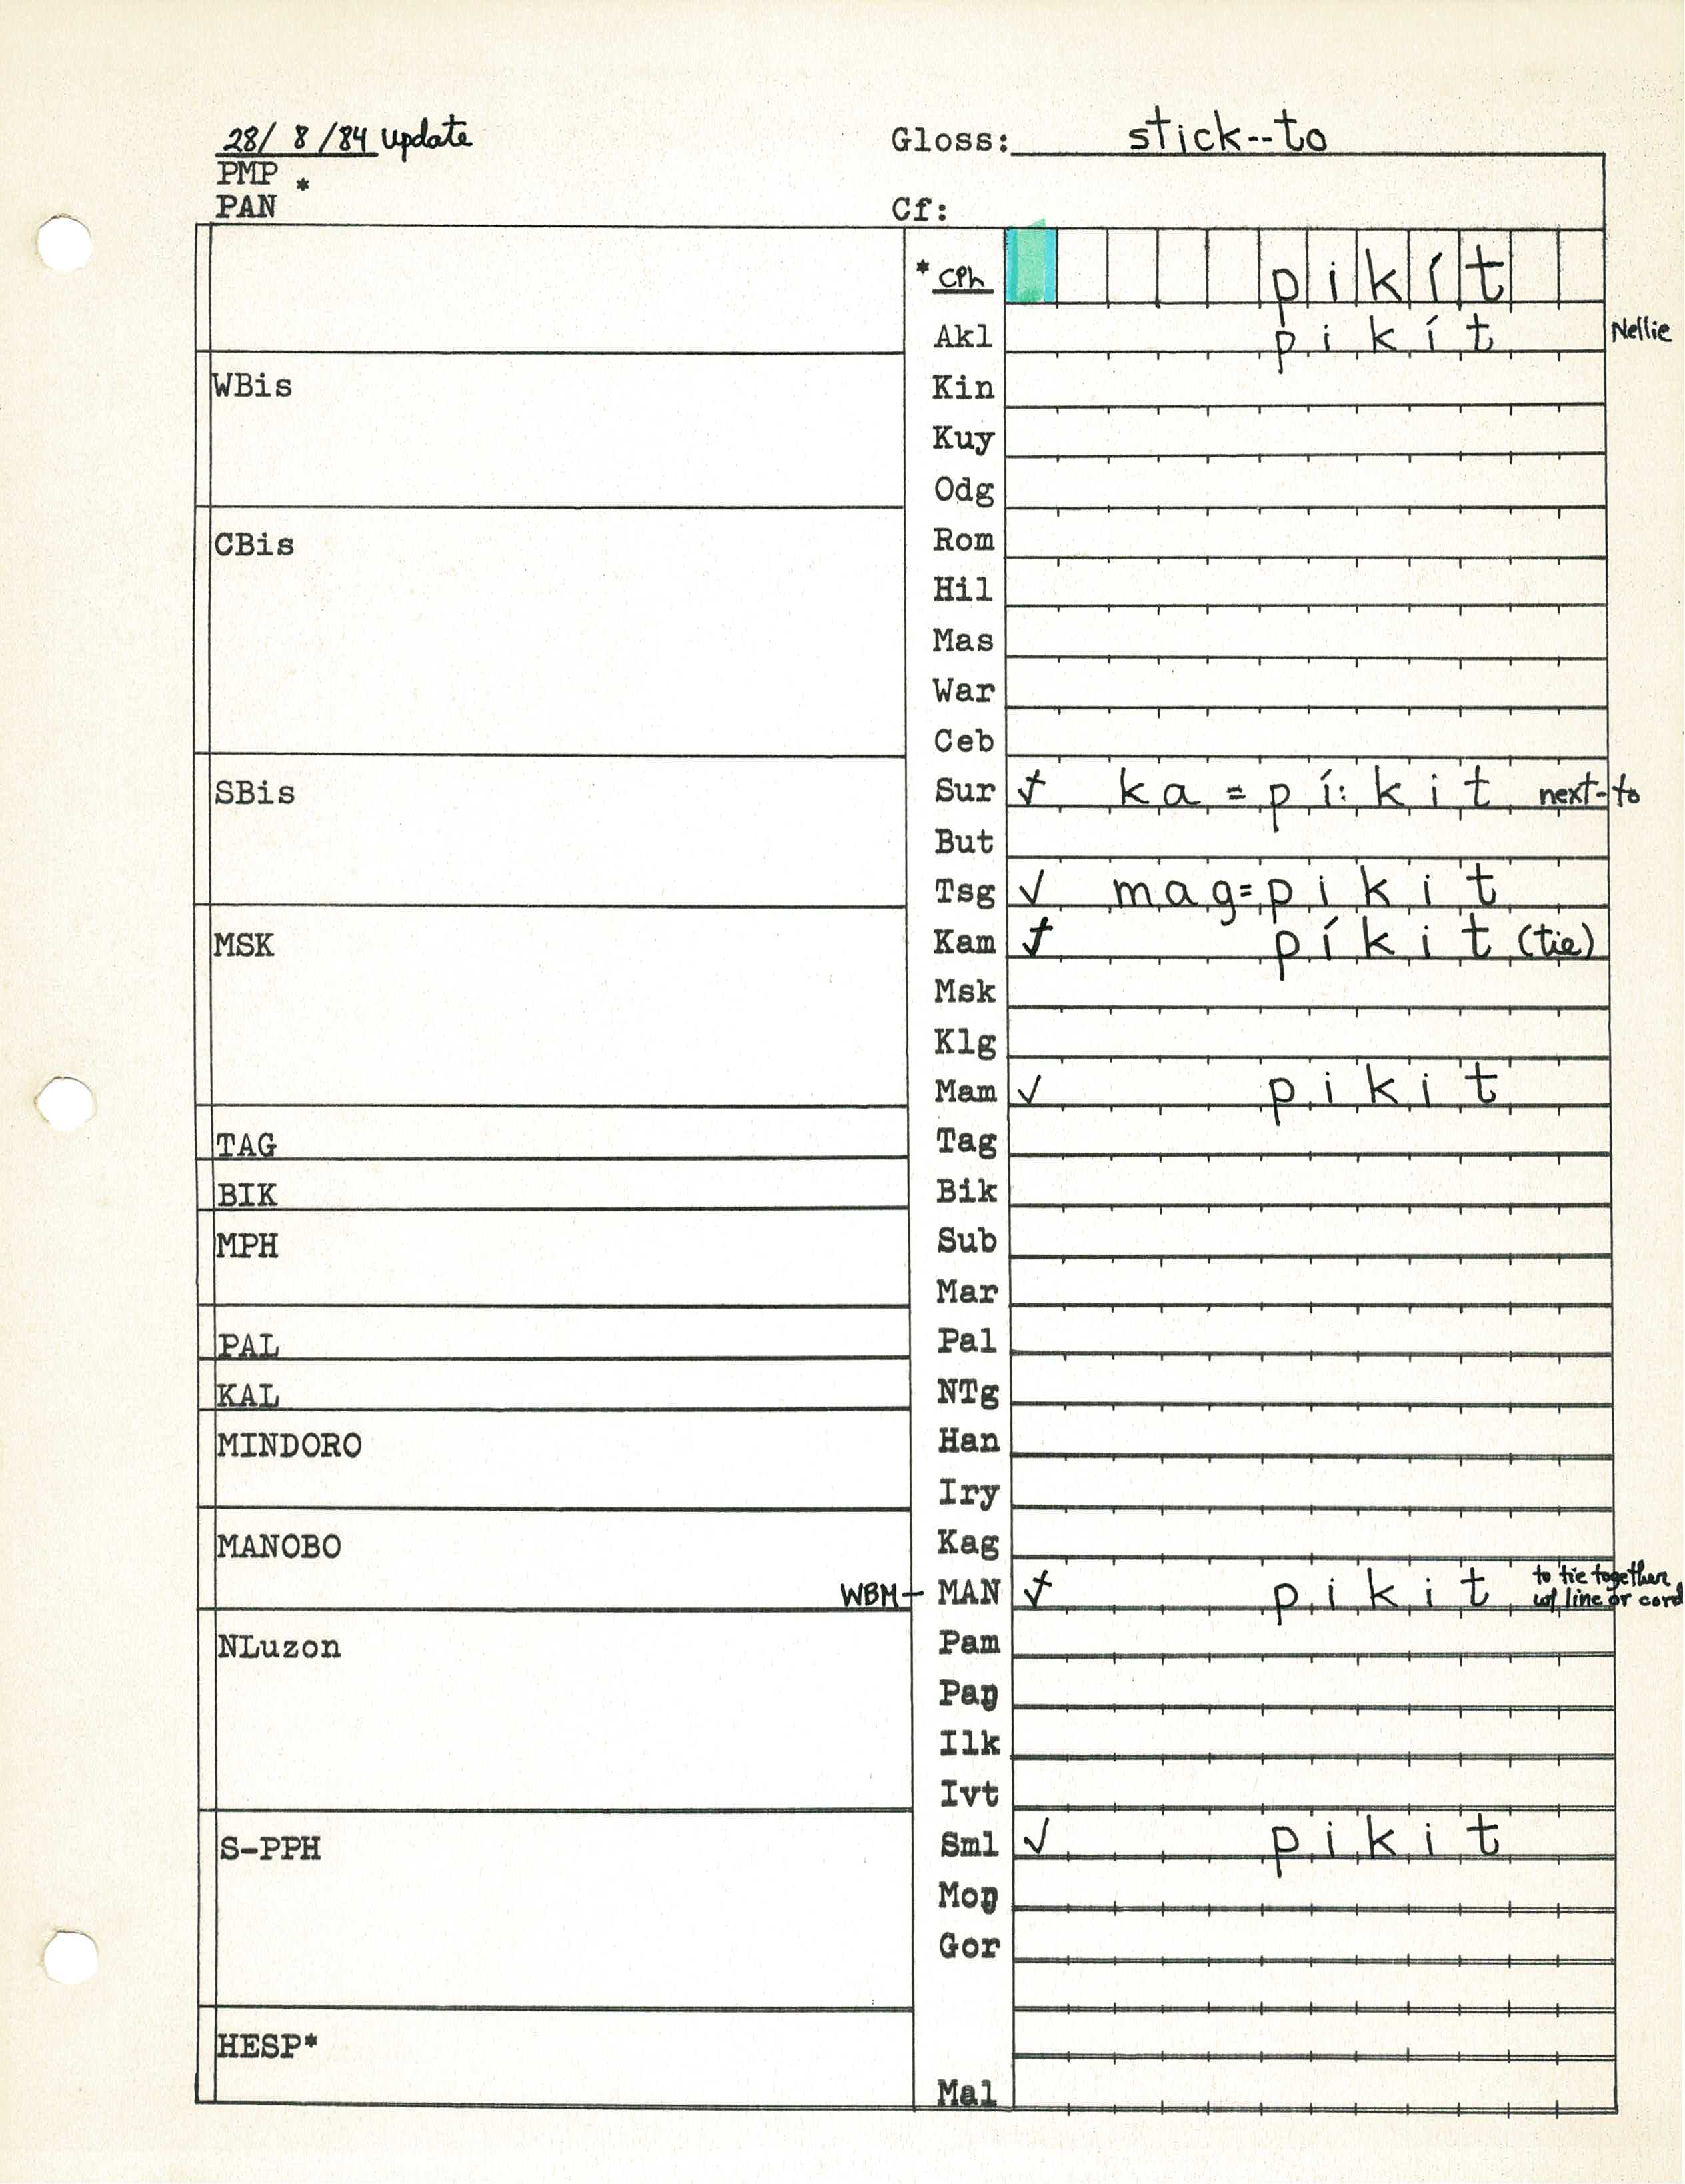 28/ 8 /84 update Gloss: stick--to
PMP *
PAN Cf:
* CPh pikít
Akl pikít Nellie
WBis Kin
Kuy
Odg
CBis Rom
Hil
Mas
War
Ceb
SBis Sur ✓ ka=pí:kit next-to
But
Tsg ✓ mag=pikit
MSK Kam ✓ píkit (tie)
Msk
Klg
Mam ✓ pikit
TAG Tag
BIK Bik
MPH Sub
Mar
PAL Pal
KAL NTg
MINDORO Han
Iry
MANOBO Kag
WBM — MAN ✓ pikit to tie together
w/ line or cord
NLuzon Pam
Paŋ
Ilk
Ivt
S-PPH Sml ✓ pikit
Moŋ
Gor
HESP*
Mal